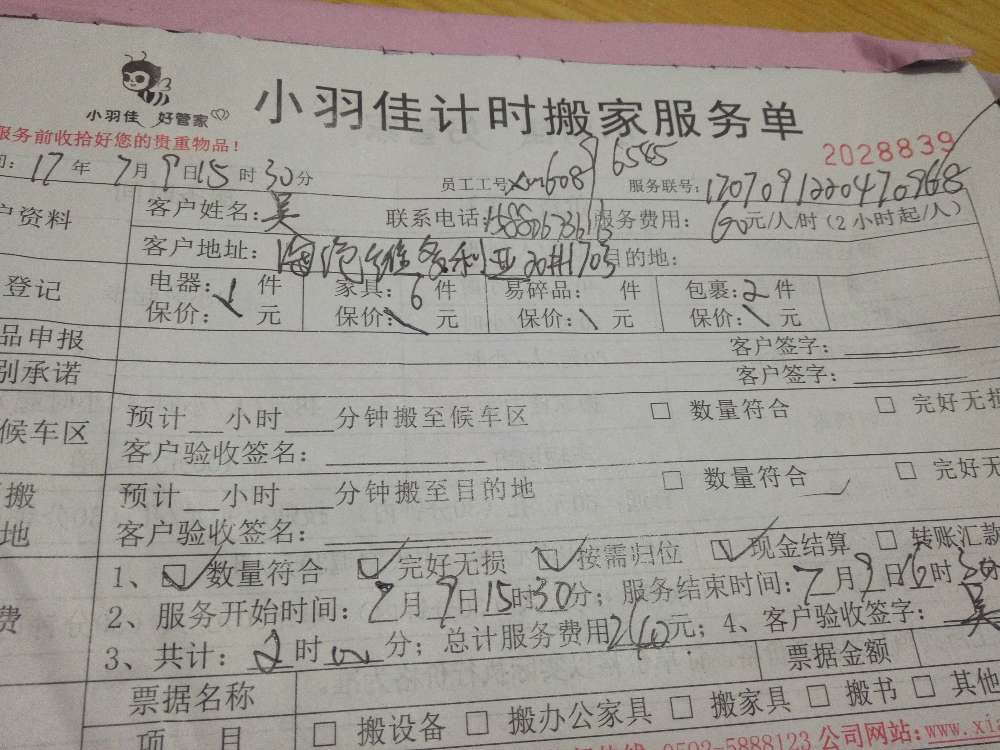 小羽佳 好管家
小羽佳计时搬家服务单
服务前收拾好您的贵重物品！
2028839
17年7月9日15时30分 员工工号xm608 6545 服务联号:1707091220470968
户资料 客户姓名:吴 联系电话: 服务费用:60元/人/时(2小时起/人)
客户地址: 维多利亚 1703 目的地:
登记 电器:1件 家具:6件 易碎品: 件 包裹:2件
保价: 元 保价: 元 保价: 元 保价: 元
品申报 客户签字:
别承诺 客户签字:
候车区 预计 小时 分钟搬至候车区 □ 数量符合 □ 完好无损
客户验收签名:
搬 预计 小时 分钟搬至目的地 □ 数量符合 □ 完好无
地 客户验收签名:
1、☑数量符合 ☑完好无损 ☑按需归位 ☑现金结算 □ 转账汇款
2、服务开始时间:7月9日15时30分; 服务结束时间:7月9日16时30分
费 3、共计:2时 分; 总计服务费用240元; 4、客户验收签字:吴
票据名称 票据金额
项 目 □ 搬设备 □ 搬办公家具 □ 搬家具 □ 搬书 □ 其他
0592-5888123 公司网站:www.xi